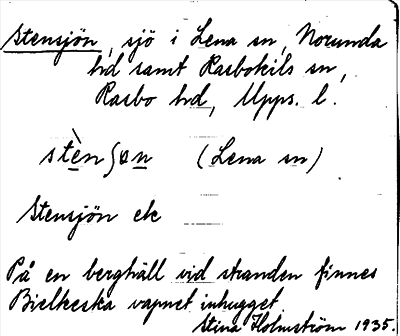 Stensjön, sjö i Lena sn, Norunda
hd samt Rasbokils sn,
Rasbo hd, Upps. l.
stènʃøn (Lena sn)
Stensjön ek
På en berghäll vid stranden finnes
Bielkeska vapnet inhugget
Stina Holmström 1935.